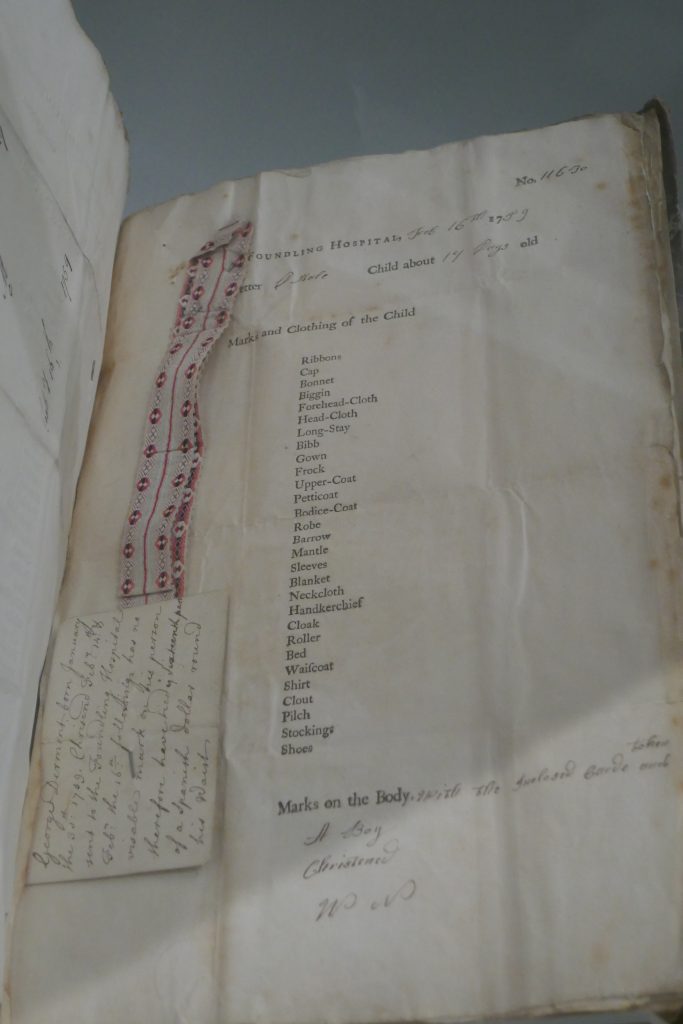 No. 11630
FOUNDLING HOSPITAL, Feb 16th 1759
etter A Male Child about 14 Days old
Marks and Clothing of the Child
Ribbons
Cap
Bonnet
Biggin
Forehead-Cloth
Head-Cloth
Long-Stay
Bibb
Gown
Frock
Upper-Coat
Petticoat
Bodice-Coat
Robe
Barrow
Mantle
Sleeves
Blanket
Neckcloth
Handkerchief
Cloak
Roller
Bed
Waiſcoat
Shirt
Clout
Pilch
Stockings
Shoes
Marks on the Body, With the Inclosed Carde and
token
A Boy
Christened
George Derment born January
the 31st 1759. Chrisend Febry 14th &
sent to the Foundling Hospital
Febry the 16th following has no
visable mark on his person
therefore have tied a sixteenth part
of a Spanish dollar round
his Waist